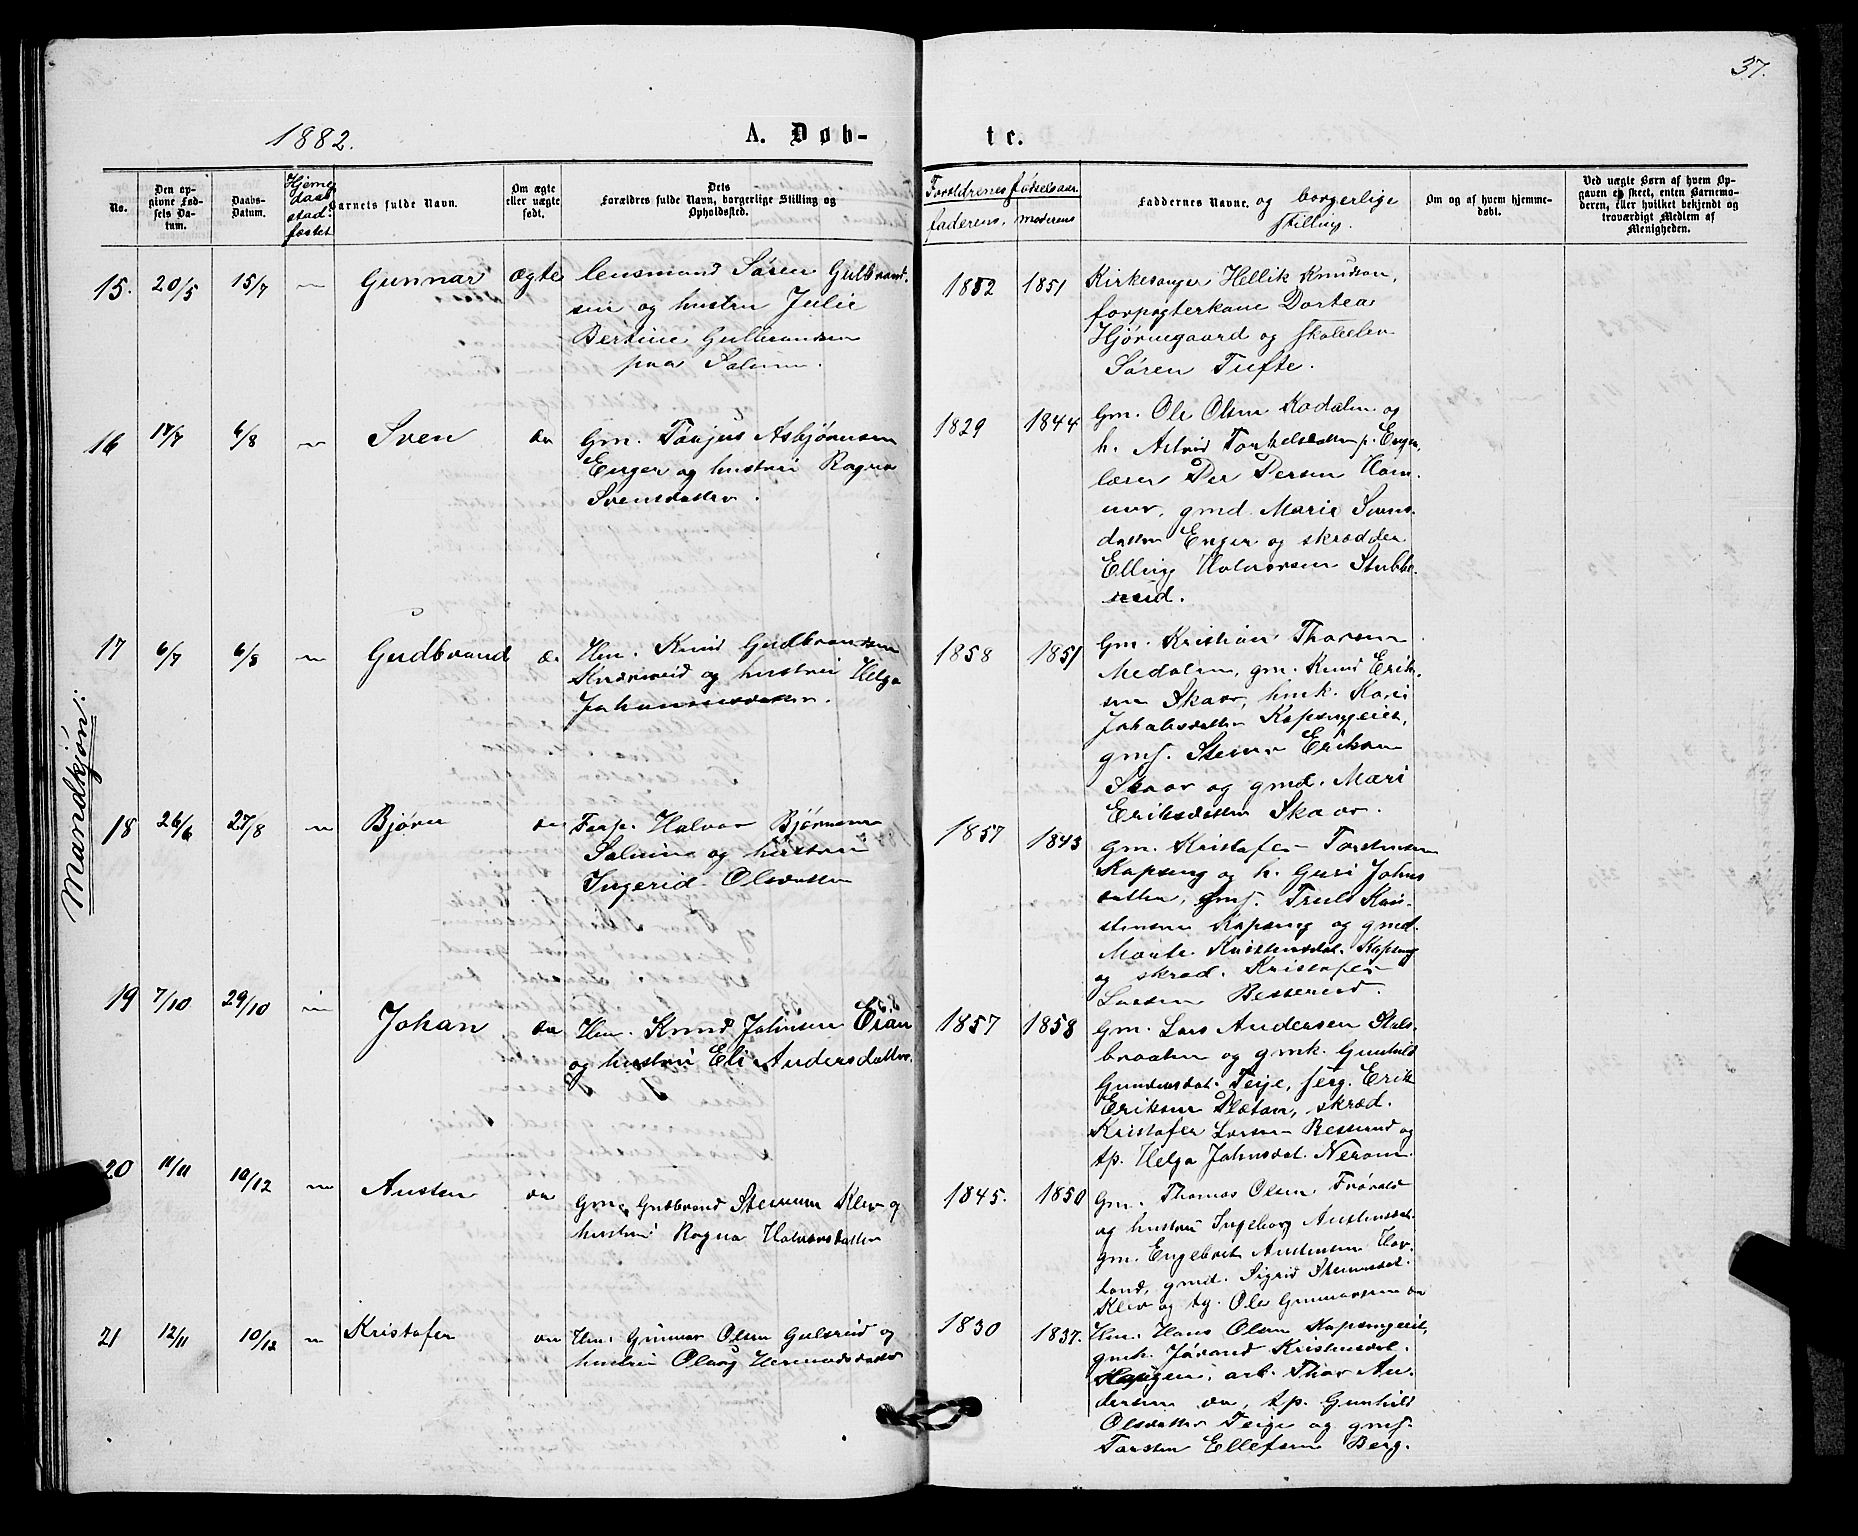 37.
1882.
A. Døb-
te.
No.
Den op-
givne Fød-
sels Da-
tum.
Daabs-
Datum.
Hjemme
daab
stad-
fæstet
Barnets fulde Navn.
Om ægte
eller uægte
født.
Dets
Forældres fulde Navn, borgerlige Stilling og
Opholdssted.
Forældrenes fødselsaar.
faderens. moderens
Faddernes Navne. og borgerlige
stilling.
Om og af hvem hjemme-
døbt.
Ved uægte Børn af hvem Op-
gaven er skeet, enten Barnemo-
deren, eller hvilket bekjendt og
troværdigt Medlem af
Menigheden.
Mandkjøn:
15. 20/5 15/7 Gunnar ægte
lensmand Søren Gulbrand-
sen og hustru Julie
Bertine Gulbrandsen
paa Solum.
1852 1851
Kirkesanger Hellik Knudsen,
forpagterkone Dortea
Hjørnegaard og skoleelev
Søren Tufte.
16 17/7 6/8 Sven do
Gm. Tarjus Asbjørnsen
Enger og hustru Ragna
Svensdatter.
1829 1844
Gm. Ole Olsen Kodalen og
h. Astrid Torkelsdatter p. Enger,
lærer Per Persen Ham-
mer, gmd. Marie Svens-
datter Enger og skrædder
Elling Halvorsen Stubbe-
rud.
17 6/7 6/8 Gudbrand do
Hm. Knud Gudbrandsen
og hustru Helga
Johannesdatter.
1858 1851
Gm. Kristian Thorsen
Medalen, gm. Knud Erik-
sen Skaar, hmk. Kari
Jakobsdatter Kopsengeiet,
gmf. Steinar Eriksen
Skaar og gmd. Mari
Eriksdatter Skaar.
18 26/6 27/8 Bjørn do
Forp. Halvor Bjørnsen
Solum og hustru
Ingerid Olsdatter
1857 1843
Gm. Kristofer Torstensen
Kopseng og h. Guri Johns-
datter, gmf. Truls Kri-
stensen Kopseng og gmd.
Marte Kristensdat. Kopseng
og skræd. Kristofer
Larsen Besserud.
19 7/10 29/10 Johan do
Hm. Knud Johnsen Eian
og hustru Eli Andersdatter.
1857 1858
Gm. Lars Andersen Stuls-
braaten og gmk. Gunhild
Gundersdat. Teije, serg. Erik
Eriksen Pletan, skræd.
Kristofer Larsen Besserud og
tp. Helga Johnsdat. Neram.
20 11/11 10/12 Austen do
Gm. Gudbrand Stenersen Klev og
hustru Ragna Halvorsdatter
1845. 1850
Gm. Thomas Olsen Frøvold
og hustru Ingeborg Austensdat.
gm. Engebret Austensen Hav-
land, gmd. Sigrid Stenersdat.
Klev og tg. Ole Gunnarsen do
21 12/11 10/12 Kristofer do
Hm. Gunnar Olsen Gulsrud og
hustru Olaug Hermodsdatter
1830 1837.
Hm. Hans Olsen Kopsengeiet,
gmk. Jørand Kristensdat.
Haugen, arb. Thor An-
dersen do, tp. Gunhild
Olsdatter Teige og gmf.
Torsten Ellefsen Berg.